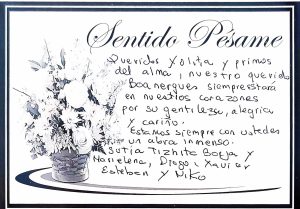 Sentido Pésame
Queridos Xolita y primos
del alma, nuestro querido
Boanerques siempre estará
en nuestros corazones
por su gentileza, alegría
y cariño.
Estamos siempre con ustedes
un abrazo inmenso.
Tizhita Borja y
Marielena, Diego, Xavier
Esteban y Niko